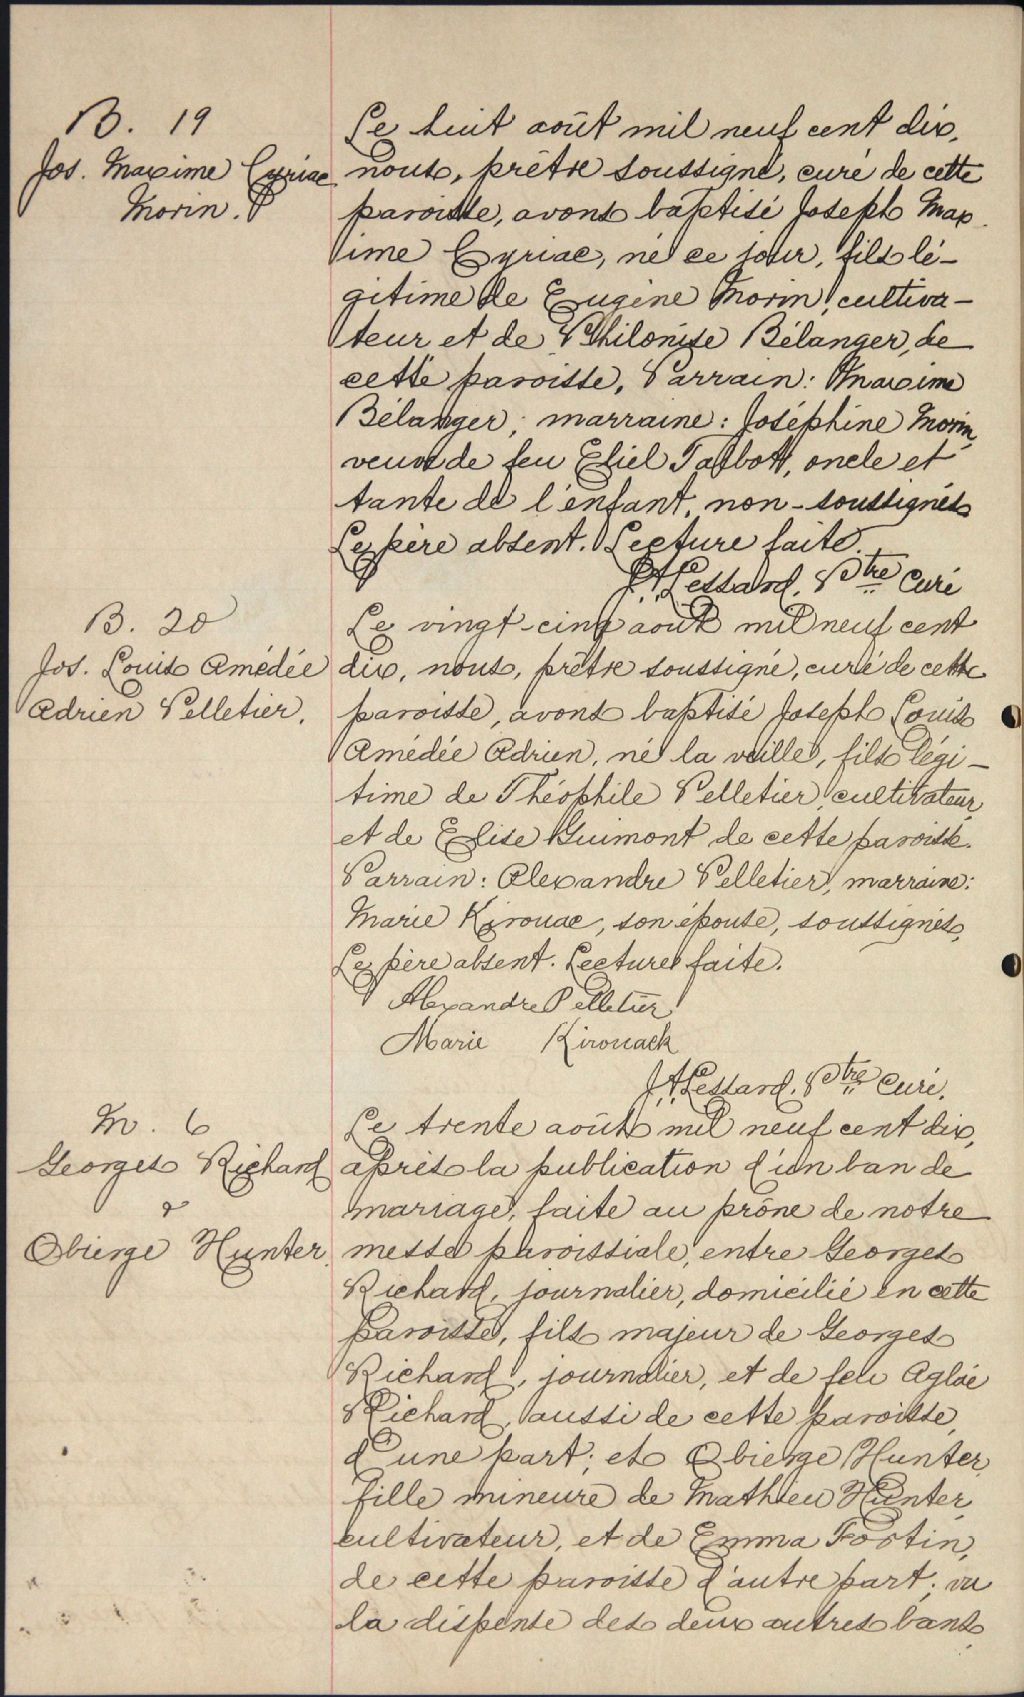 B. 19
Jos. Maxime Cyriac
Morin.
Le huit août mil neuf cent dix,
nous, prêtre soussigné, curé de cette
paroisse, avons baptisé Joseph Max
ime Cyriac, né ce jour, fils lé-
gitime de Eugène Morin, cultiva-
teur et de Philonise Bélanger, de
cette paroisse, Parrain: Maxime
Bélanger; marraine: Joséphine Morin,
veuve de feu Eliel Talbot, oncle et
tante de l'enfant, non-soussignés
Le père absent. Lecture faite.
J. A. Lessard, Ptre Curé
B. 20
Jos. Louis Amédée
Adrien Pelletier.
Le vingt-cinq août mil neuf cent
dix, nous, prêtre soussigné, curé de cette
paroisse, avons baptisé Joseph Louis
Amédée Adrien, né la veille, fils légi-
time de Théophile Pelletier, cultivateur,
et de Elise Guimont de cette paroisse.
Parrain: Alexandre Pelletier, marraine:
Marie Kirouac, son épouse, soussignés,
Le père absent. Lecture faite.
Alexandre Pelletier
Marie Kirouack
J. A. Lessard, Ptre Curé.
M. 6
Georges Richard
&
Obierge Hunter.
Le trente août mil neuf cent dix,
après la publication d'un ban de
mariage, faite au prône de notre
messe paroissiale, entre Georges
Richard, journalier, domicilié en cette
paroisse, fils majeur de Georges
Richard, journalier, et de feu Aglaé
Richard, aussi de cette paroisse,
d'une part; et Obierge Hunter,
fille mineure de Mathieu Hunter,
cultivateur, et de Emma Fortin,
de cette paroisse d'autre part; vu
la dispense des deux autres bans